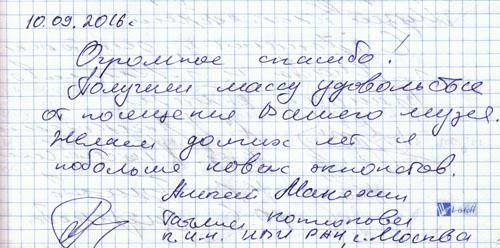 10.09.2016г.
Огромное спасибо!
Получили массу удовольствия
от посещения Вашего музея.
Желаем долгих лет и
побольше новых экпонатов.
Алексей
Татьяна
к.и.н. РАН, г. Москва